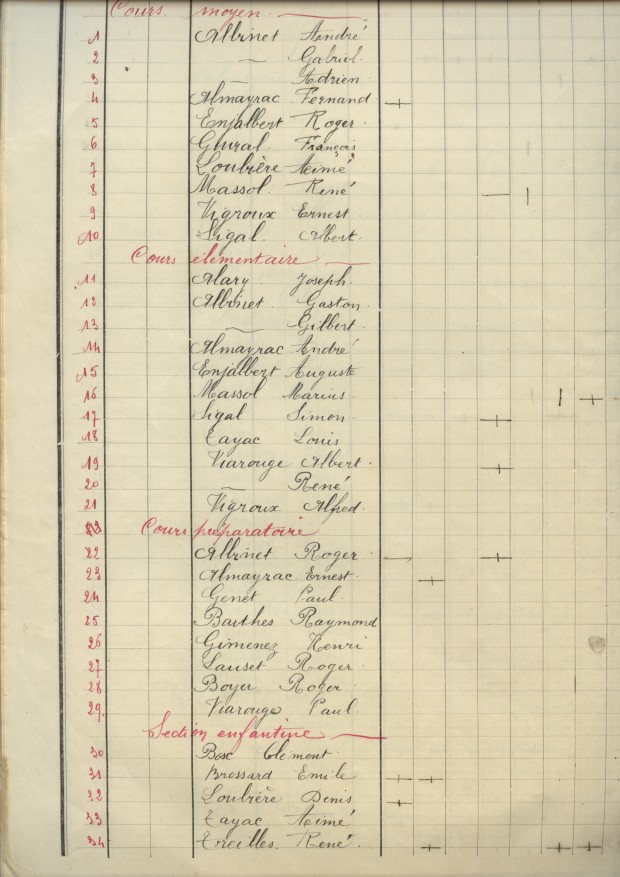 Cours moyen.
1 Albinet André
2 — Gabriel.
3 — Adrien
4 Almayrac Fernand
5 Enjalbert Roger.
6 Glural François
7 Loubière Aimé
8 Massol. René
9 Vigroux Ernest.
10 Sigal. Albert.
Cours élémentaire
11 Alary. Joseph.
12 Albinet. Gaston.
13 — Gilbert.
14 Almayrac André
15 Enjalbert Auguste
16 Massol Marius.
17 Sigal Simon.
18 Tayac Louis
19 Viarouge Albert.
20 — René
21 Vigroux Alfred.
Cours préparatoire
22 Albinet Roger.
23 Almayrac Ernest.
24 Genet Paul.
25 Barthes Raymond
26 Gimenez Henri
27 Lauset Roger.
28 Boyer Roger
29. Viarouge Paul.
Section enfantine
30 Bosc Clément.
31 Brossard Emile
32 Loubière Denis
33 Tayac Aimé
34 Treilles. René.